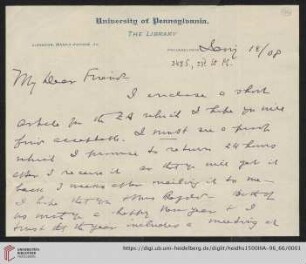 University of Pennsylvania.
THE LIBRARY
PHILADELPHIA
18/08
My Dear Friend
I enclose a short
article for the ZA which I hope you will
find acceptable. I must see a proof
which I promise to return 24 hours
after I receive it so that you will get it
back 2 weeks after mailing it to me.
I hope that you & Mrs
a happy New Year & I
trust that the year includes a meeting at
UNIVERSITÄTS-
BIBLIOTHEK
HEIDELBERG
https://digi.ub.uni-heidelberg.de/diglit/heidhs1500IIA-96_66/0001